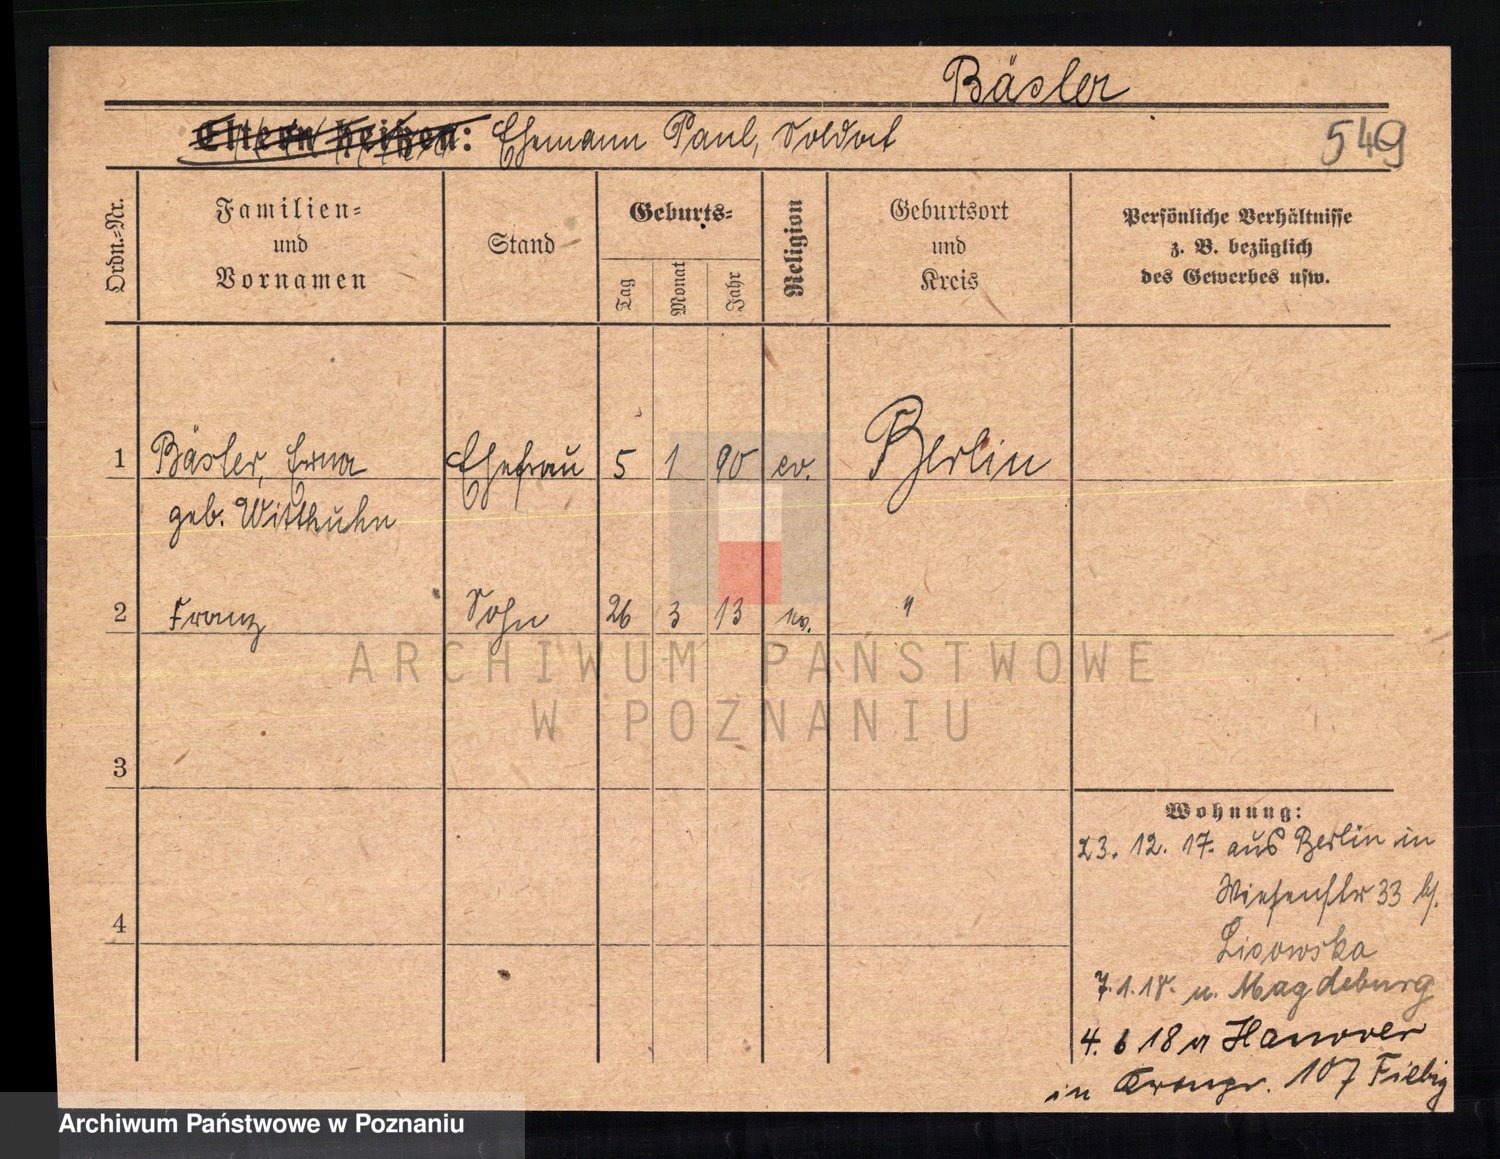 Bäsler
Eltern heißen: Ehemann Paul, Soldat
549
Ordn.-Nr.
Familien-
und
Vornamen
Stand
Geburts-
Tag
Monat
Jahr
Religion
Geburtsort
und
Kreis
Persönliche Verhältnisse
z. B. bezüglich
des Gewerbes usw.
1 Bäsler, Erna Ehefrau 5 1 90 ev. Berlin
geb. Witthuhn
2 Franz Sohn 26 3 13 "
ARCHIWUM PAŃSTWOWE
W POZNANIU
3
Wohnung:
23. 12. 17. aus Berlin in
Wiesenstr 33 b/.
4
Lisowska
7. 1. 18. n. Magdeburg
4. 6 18 Hanover
in Kronpr. 107 Fiebig
Archiwum Państwowe w Poznaniu